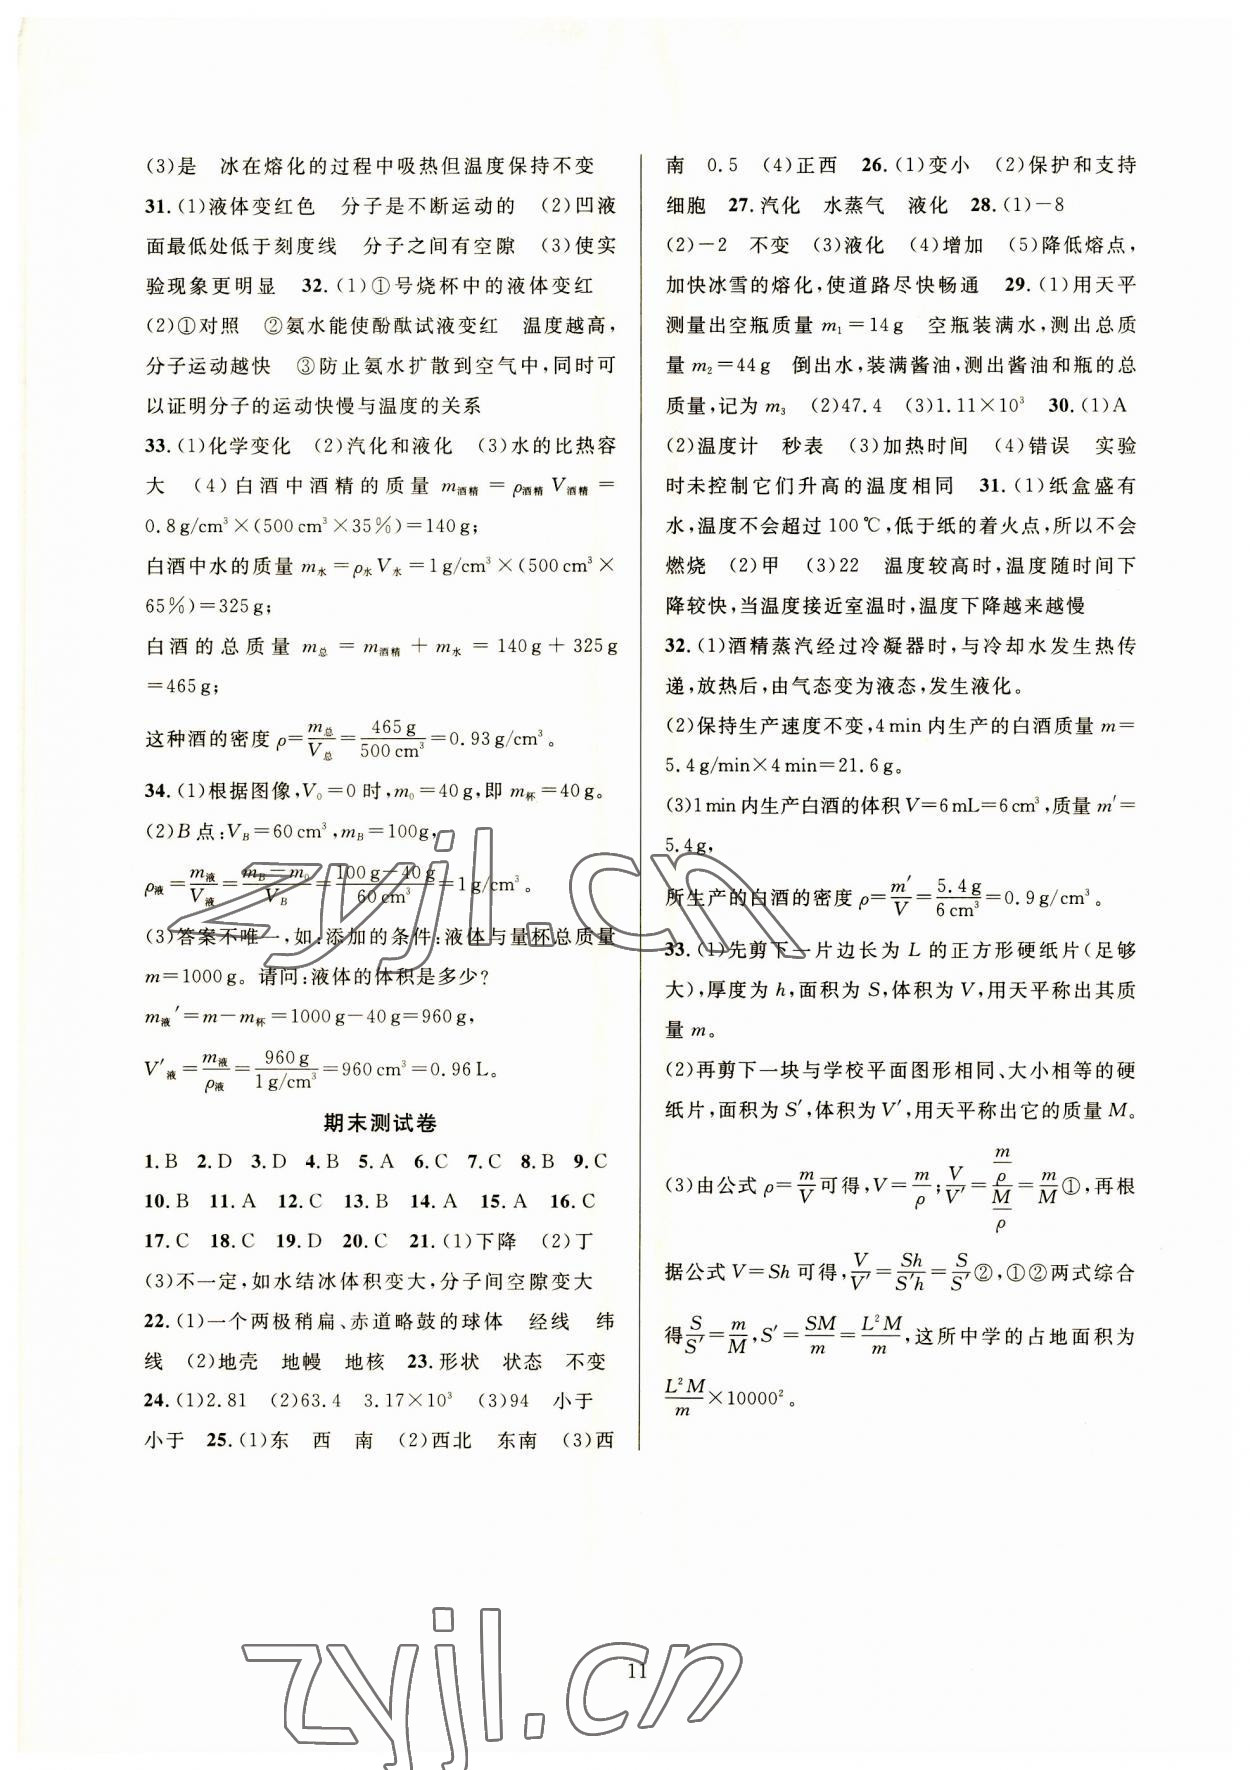 (3)是　冰在熔化的过程中吸热但温度保持不变
31.(1)液体变红色　分子是不断运动的　(2)凹液
面最低处低于刻度线　分子之间有空隙　(3)使实
验现象更明显　32.(1)①号烧杯中的液体变红
(2)①对照　②氨水能使酚酞试液变红　温度越高,
分子运动越快　③防止氨水扩散到空气中,同时可
以证明分子的运动快慢与温度的关系
33.(1)化学变化　(2)汽化和液化　(3)水的比热容
大　(4)白酒中酒精的质量 m酒精＝ρ酒精V酒精＝
0.8g/cm³×(500cm³×35%)＝140g;
白酒中水的质量 m水＝ρ水V水＝1g/cm³×(500cm³×
65%)＝325g;
白酒的总质量 m总＝m酒精＋m水＝140g＋325g
＝465g;
这种酒的密度 ρ＝m总/V总＝465g/500cm³＝0.93g/cm³。
34.(1)根据图像,V₀＝0时,m₀＝40g,即 m杯＝40g。
(2)B点:V_B＝60cm³,m_B＝100g,
ρ液＝m液/V液＝(m_B－m₀)/V_B＝(100g－40g)/60cm³＝1g/cm³。
(3)答案不唯一,如:添加的条件:液体与量杯总质量
m＝1000g。请问:液体的体积是多少?
m液′＝m－m杯＝1000g－40g＝960g,
V′液＝m液/ρ液＝960g/1g/cm³＝960cm³＝0.96L。
期末测试卷
1.B　2.D　3.D　4.B　5.A　6.C　7.C　8.B　9.C
10.B　11.A　12.C　13.B　14.A　15.A　16.C
17.C　18.C　19.D　20.C　21.(1)下降　(2)丁
(3)不一定,如水结冰体积变大,分子间空隙变大
22.(1)一个两极稍扁、赤道略鼓的球体　经线　纬
线　(2)地壳　地幔　地核　23.形状　状态　不变
24.(1)2.81　(2)63.4　3.17×10³　(3)94　小于
小于　25.(1)东　西　南　(2)西北　东南　(3)西
南　0.5　(4)正西　26.(1)变小　(2)保护和支持
细胞　27.汽化　水蒸气　液化　28.(1)－8
(2)－2　不变　(3)液化　(4)增加　(5)降低熔点,
加快冰雪的熔化,使道路尽快畅通　29.(1)用天平
测量出空瓶质量 m₁＝14g　空瓶装满水,测出总质
量 m₂＝44g　倒出水,装满酱油,测出酱油和瓶的总
质量,记为 m₃　(2)47.4　(3)1.11×10³　30.(1)A
(2)温度计　秒表　(3)加热时间　(4)错误　实验
时未控制它们升高的温度相同　31.(1)纸盒盛有
水,温度不会超过100℃,低于纸的着火点,所以不会
燃烧　(2)甲　(3)22　温度较高时,温度随时间下
降较快,当温度接近室温时,温度下降越来越慢
32.(1)酒精蒸汽经过冷凝器时,与冷却水发生热传
递,放热后,由气态变为液态,发生液化。
(2)保持生产速度不变,4min内生产的白酒质量 m＝
5.4g/min×4min＝21.6g。
(3)1min内生产白酒的体积V＝6mL＝6cm³,质量m′＝
5.4g,
所生产的白酒的密度 ρ＝m′/V＝5.4g/6cm³＝0.9g/cm³。
33.(1)先剪下一片边长为 L 的正方形硬纸片(足够
大),厚度为 h,面积为 S,体积为 V,用天平称出其质
量 m。
(2)再剪下一块与学校平面图形相同、大小相等的硬
纸片,面积为 S′,体积为 V′,用天平称出它的质量 M。
(3)由公式 ρ＝m/V可得,V＝m/ρ;V/V′＝(m/ρ)/(M/ρ)＝m/M①,再根
据公式 V＝Sh 可得,V/V′＝Sh/S′h＝S/S′②,①②两式综合
得S/S′＝m/M,S′＝SM/m＝L²M/m,这所中学的占地面积为
L²M/m×10000²。
zyjl.cn
zyjl.cn
11